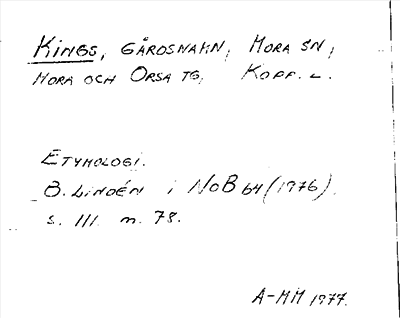 Kings, GÅRDSNAMN, MORA SN,
MORA OCH ORSA TG, KOPP. L.
ETYMOLOGI.
B. LINDÉN i NoB 64 (1976)
s. 111 m. 78.
A-MM 1977.